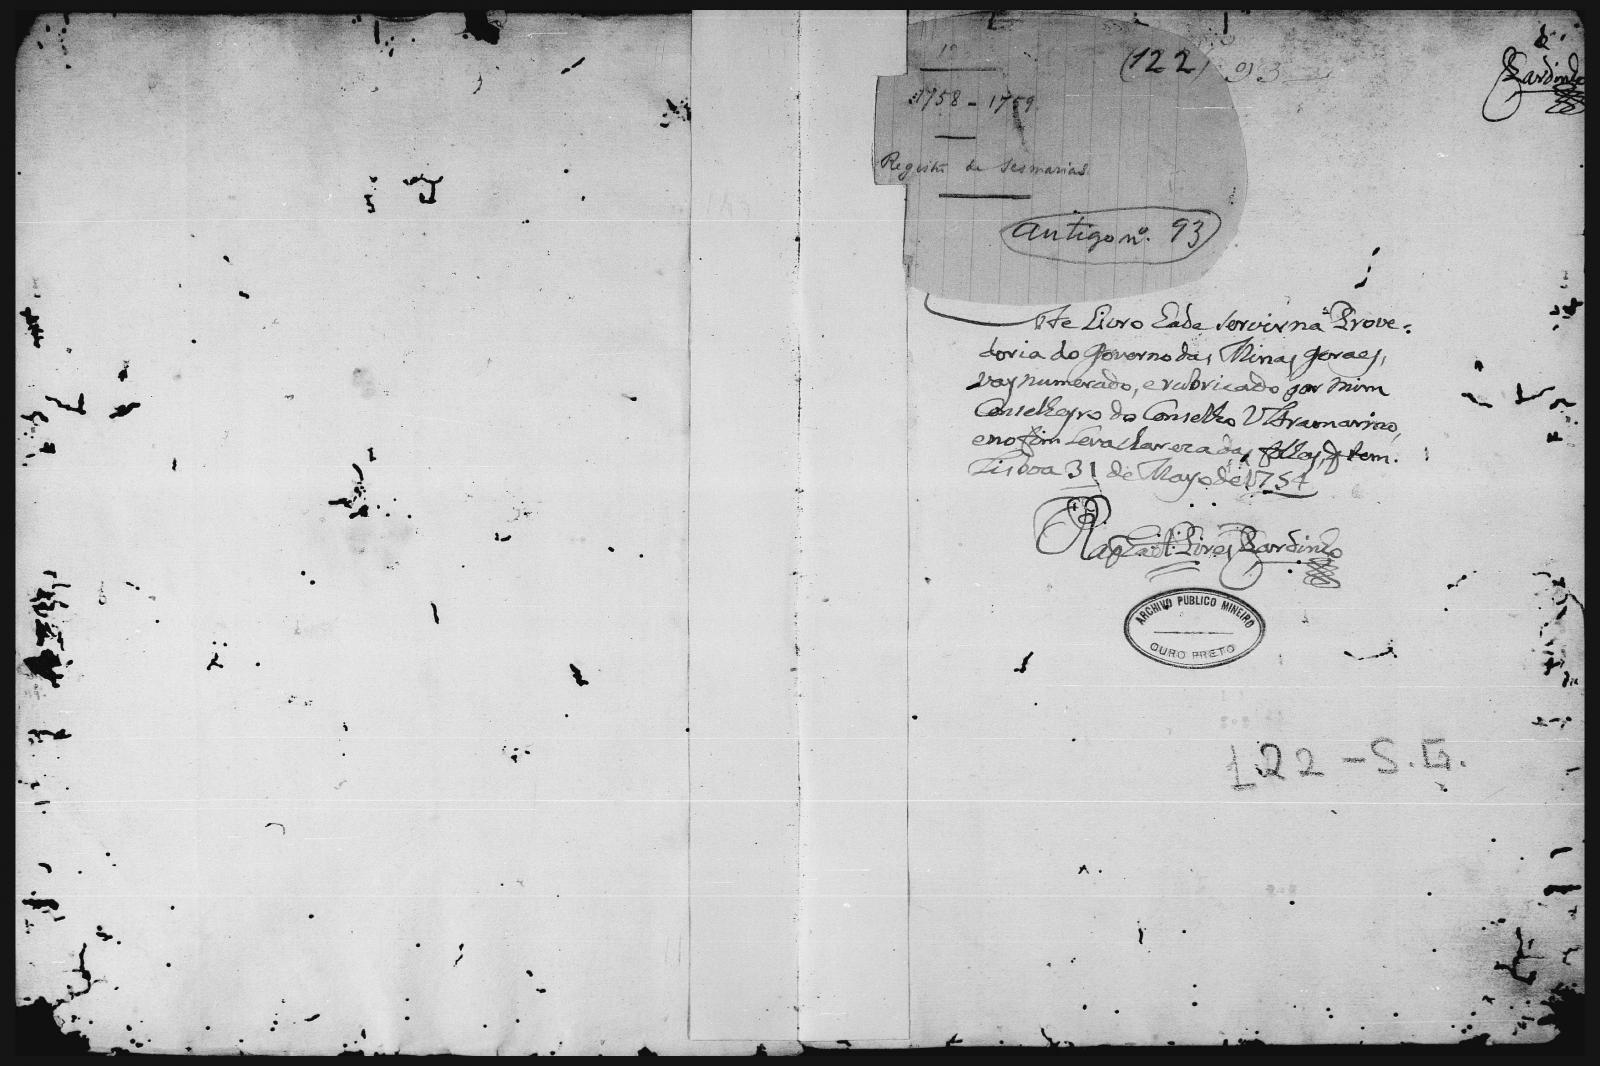 1º
(122) 93
1758 - 1759
Registro de Sesmarias
antigo nº. 93
Pardinho
Este Livro hade servir na Prove-
doria do Governo das Minas geraes,
vay numerado, e rubricado por mim
Conselheyro do Conselho Ultramarino,
e no fim leva clareza das folhas, q̃ tem.
Lisboa 31 de Mayo de 1754
Raphael Pires Pardinho
ARCHIVO PUBLICO MINEIRO
OURO PRETO
122 - S.G.